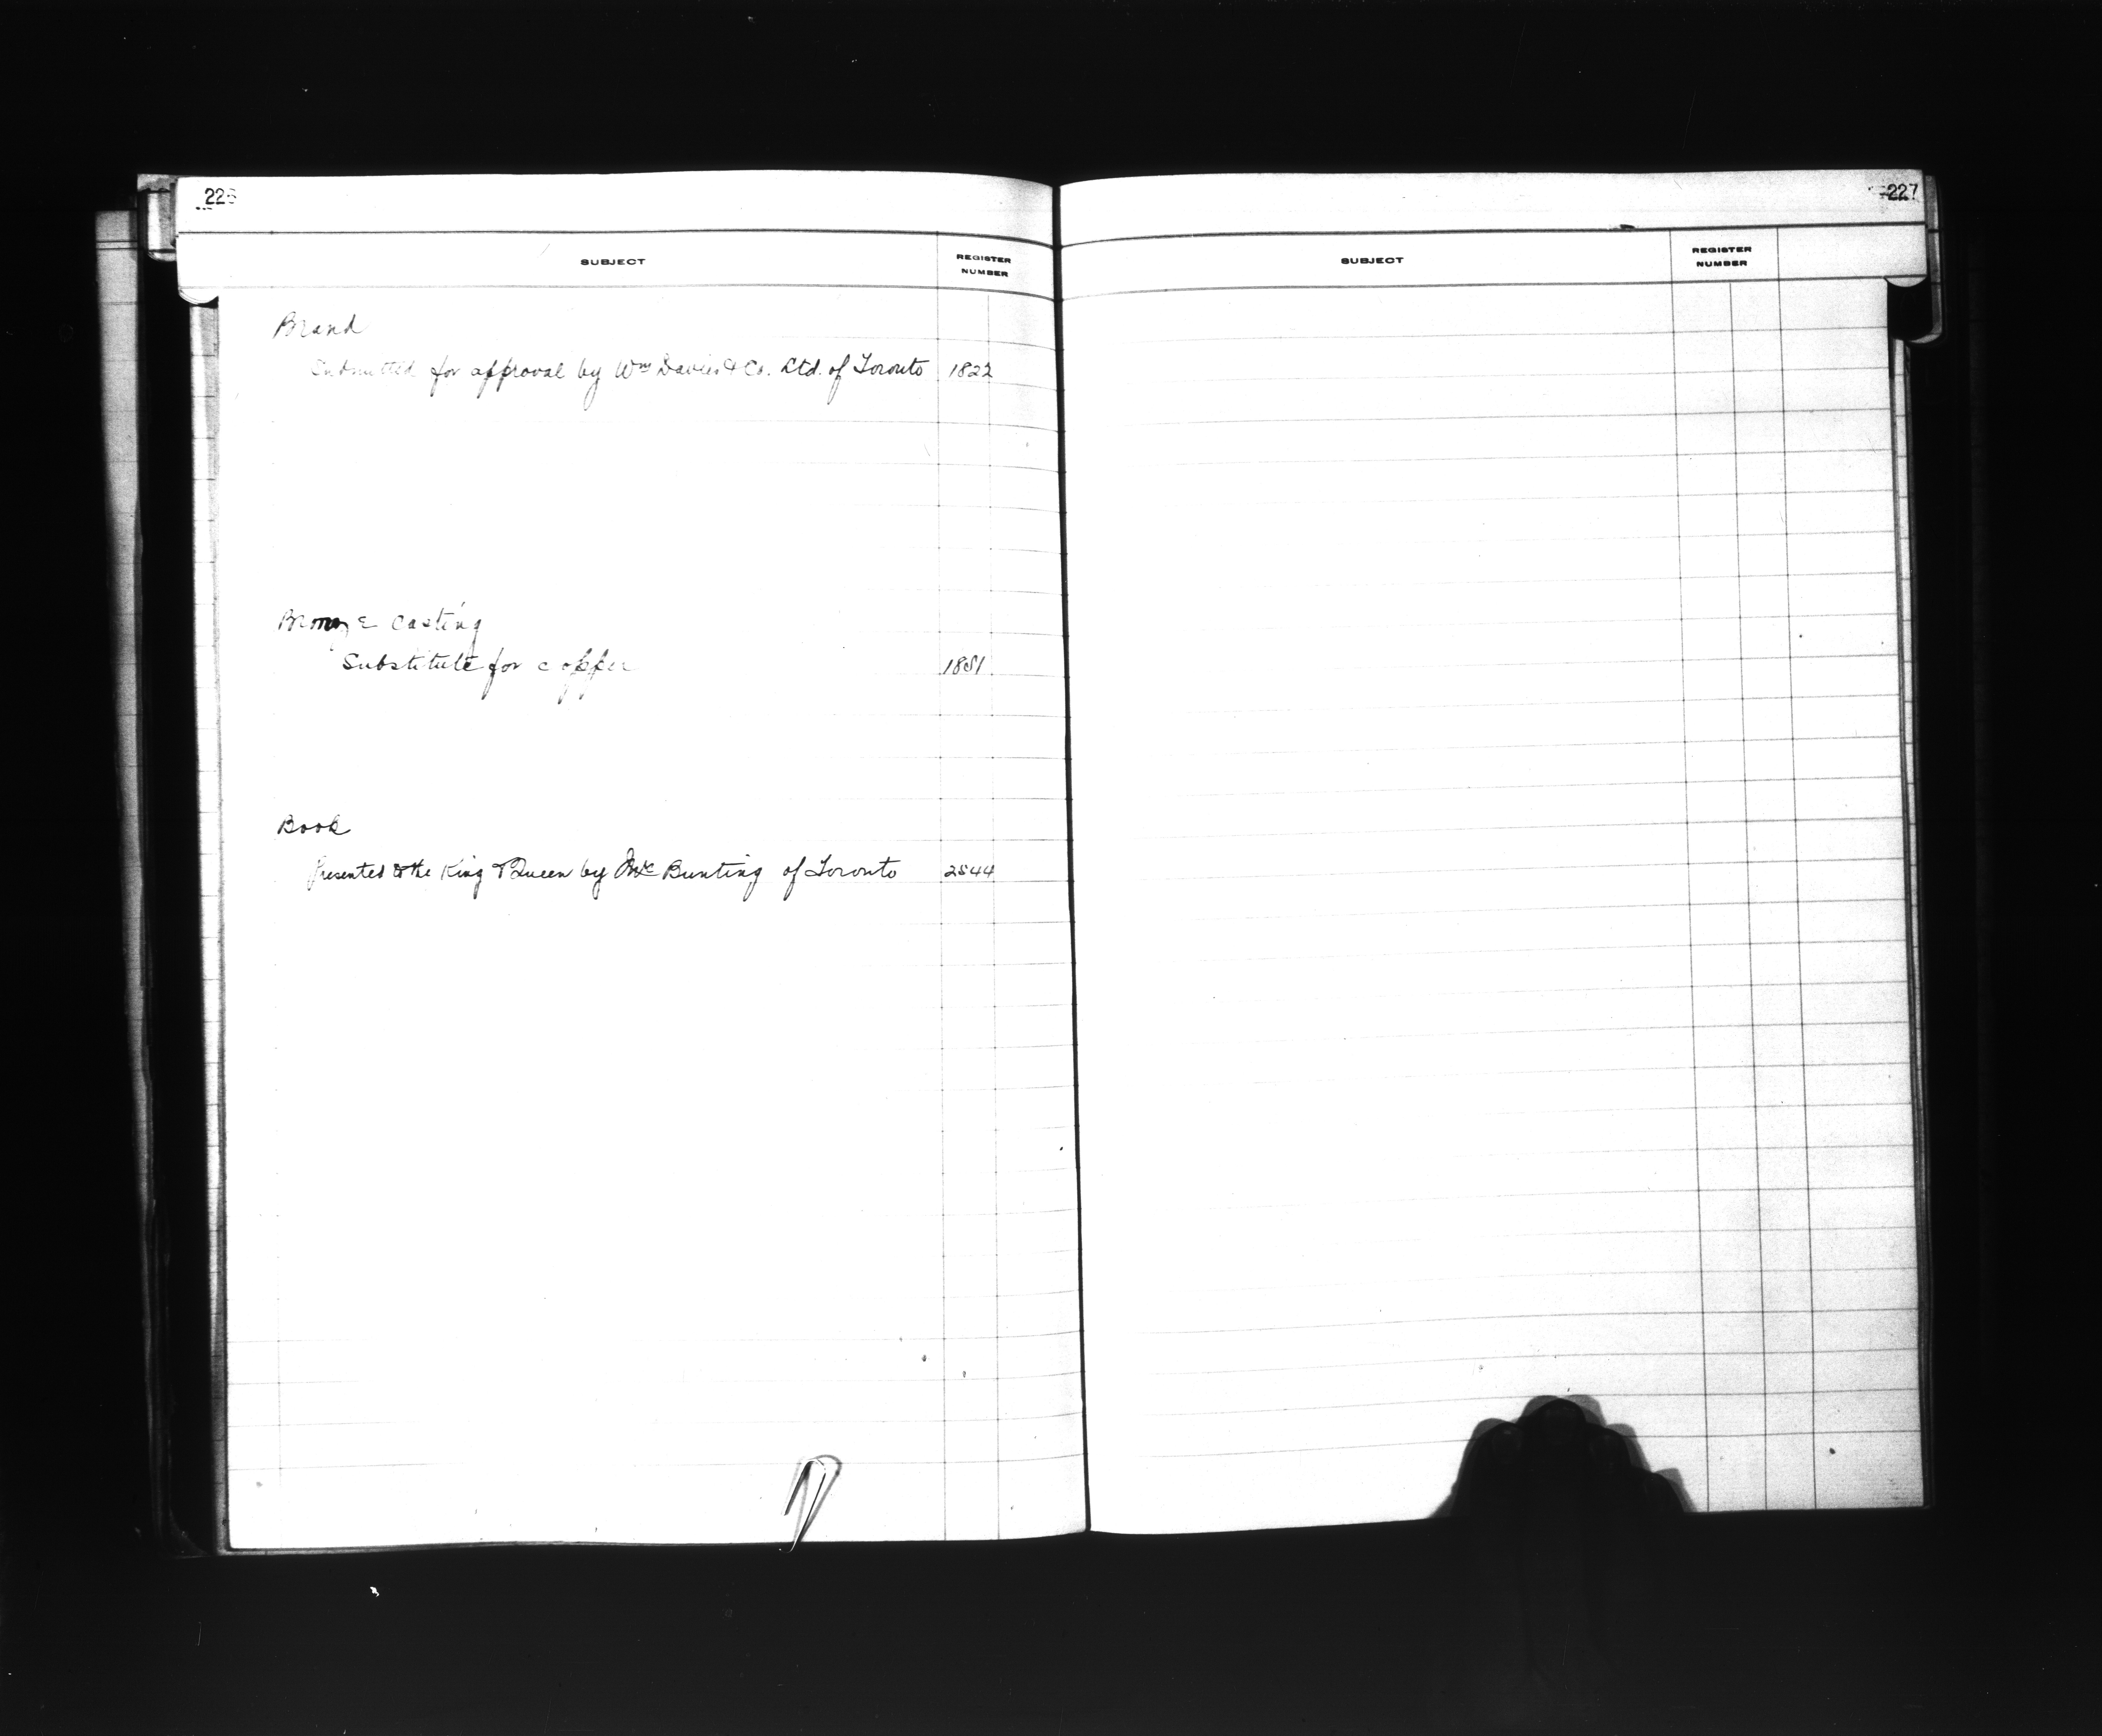 226
SUBJECT
REGISTER
NUMBER
Brand
Submitted for approval by Wm Davies & Co. Ltd. of Toronto 1822
Bronze Casting
Substitute for copper 1851
Book
Presented to the King & Queen by Bunting of Toronto 2544
227
SUBJECT
REGISTER
NUMBER